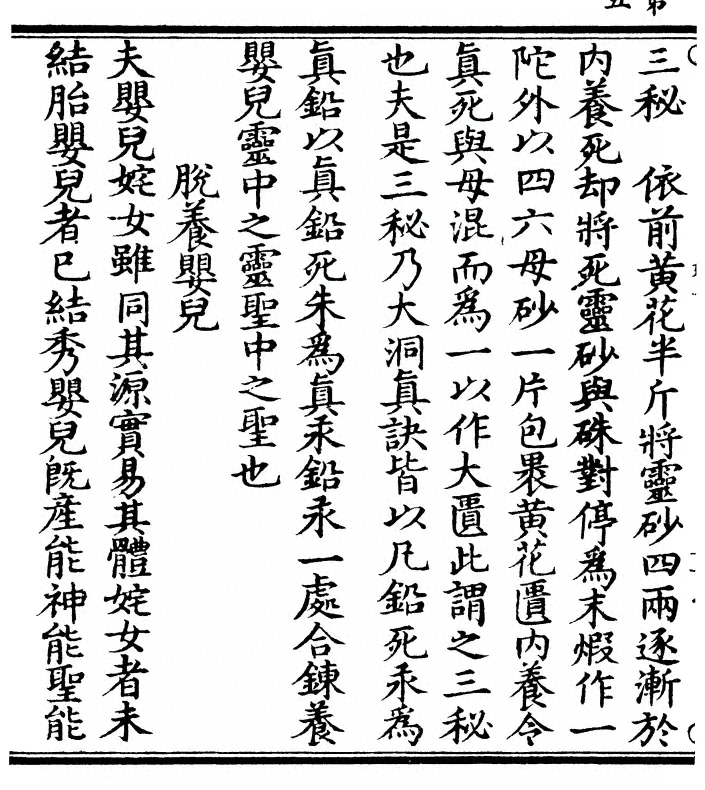 三秘　依前黄花半斤將靈砂四兩逐漸於
内養死却將死靈砂與硃對停爲末煆作一
陀外以四六母砂一片包褁黄花匱内養令
眞死與母混而爲一以作大匱此謂之三秘
也夫是三秘乃大洞眞訣皆以凡鉛死汞爲
眞鉛以眞鉛死朱爲眞汞鉛汞一處合鍊養
嬰兒靈中之靈聖中之聖也
脫養嬰兒
夫嬰兒姹女雖同其源實易其體姹女者未
結胎嬰兒者已結秀嬰兒旣産能神能聖能